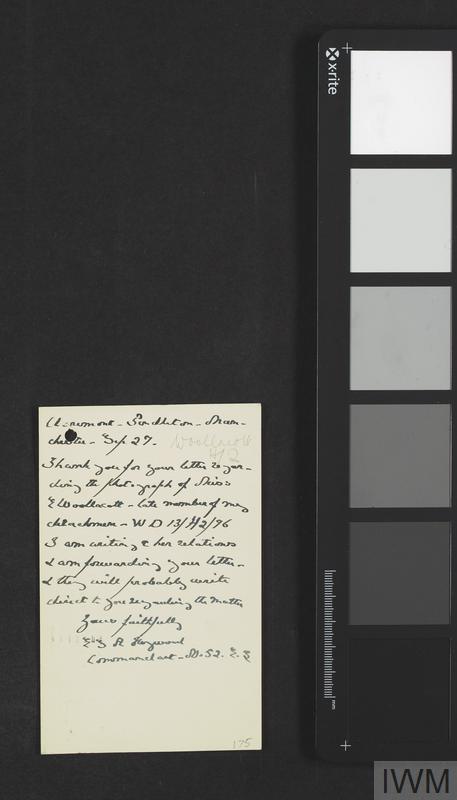 x·rite
Claremont - Pendleton - Man-
chester - Sep 27.
Woollscott
H/2
Thank you for your letter regar-
ding the photograph of Miss
E Woollscott - late member of my
detachment - W D 13/H2/96
I am writing to her relations
& am forwarding your letter -
& they will probably write
direct to you regarding the matter
Yours faithfully
A Heywood
Commandant -
175
mm
IWM